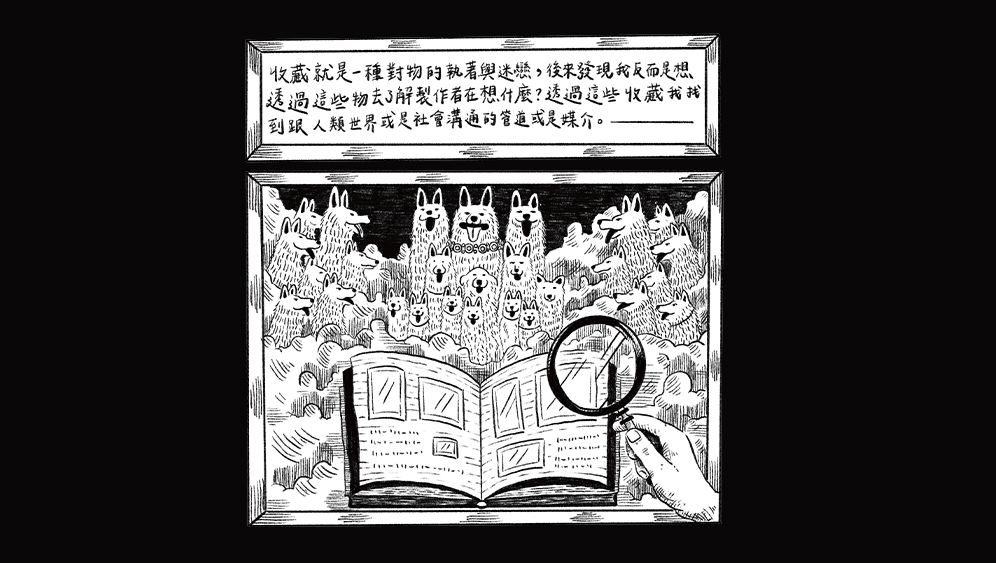 收藏就是一種對物的執著與迷戀，後來發現我反而是想
透過這些物去了解製作者在想什麼？透過這些收藏我找
到跟人類世界或是社會溝通的管道或是媒介。————